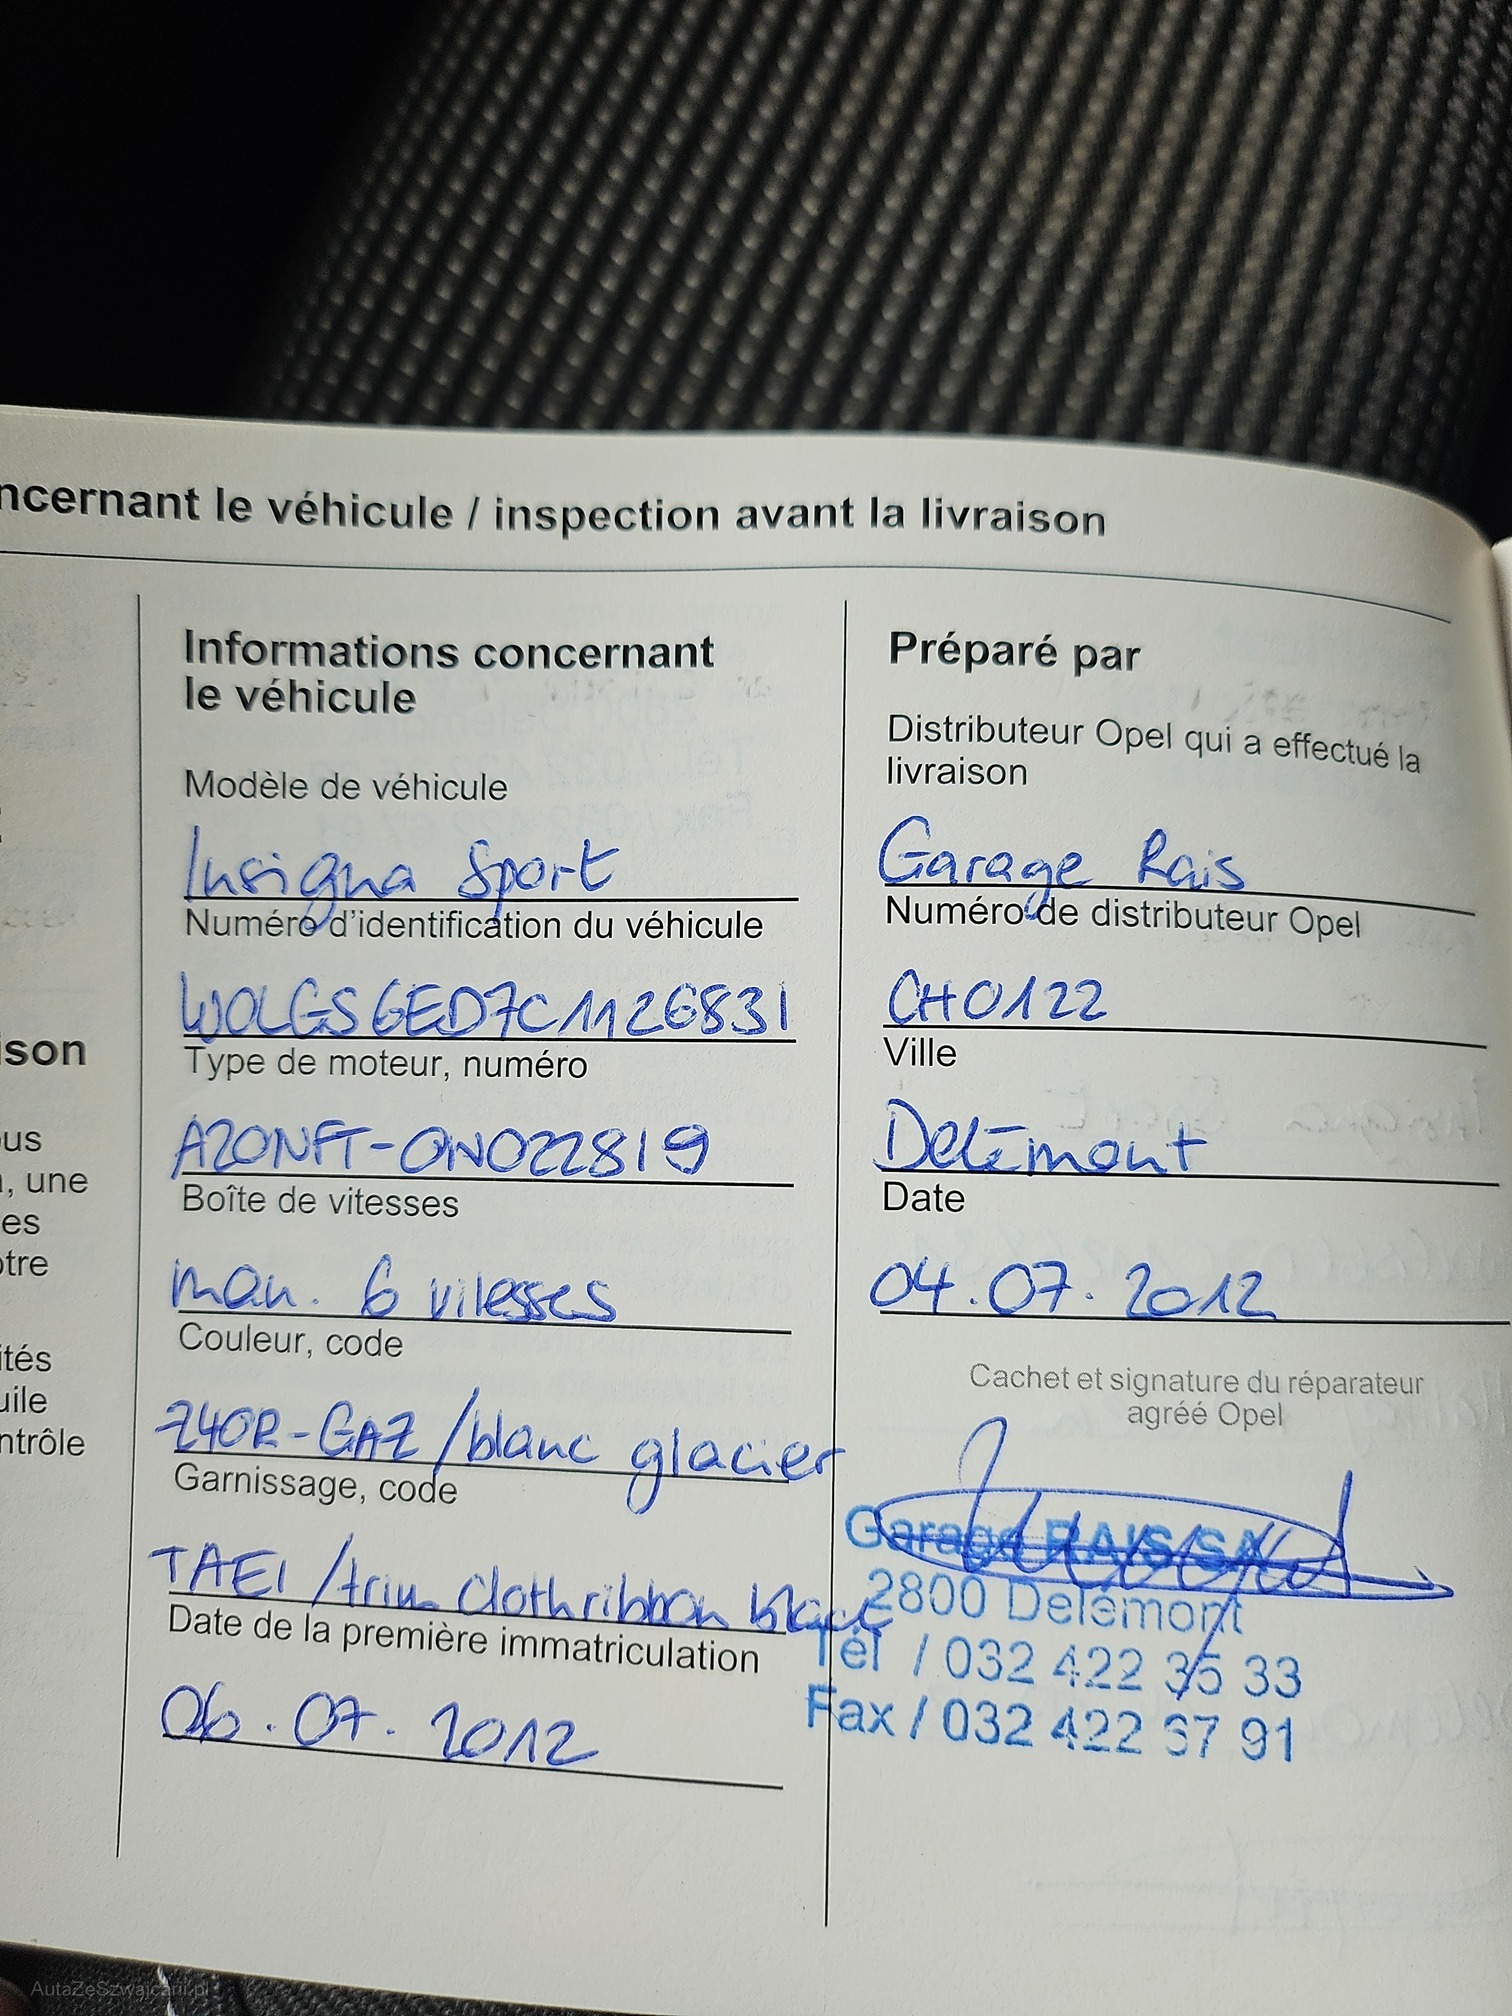 ncernant le véhicule / inspection avant la livraison
ison
us
, une
es
otre
ités
uile
ntrôle
Informations concernant
le véhicule
Modèle de véhicule
Insigna Sport
Numéro d'identification du véhicule
W0LGS6ED7C1126831
Type de moteur, numéro
A20NFT-0N022819
Boîte de vitesses
man. 6 vitesses
Couleur, code
Z40R-GAZ/blanc glacier
Garnissage, code
TAEI /trim Clothribbon black
Date de la première immatriculation
06.07.2012
Préparé par
Distributeur Opel qui a effectué la
livraison
Garage Rais
Numéro de distributeur Opel
CH0122
Ville
Delémont
Date
04.07.2012
Cachet et signature du réparateur
agréé Opel
Garage RAIS SA
2800 Delémont
Tél / 032 422 35 33
Fax / 032 422 67 91
AutaZeSzwajcarii.pl